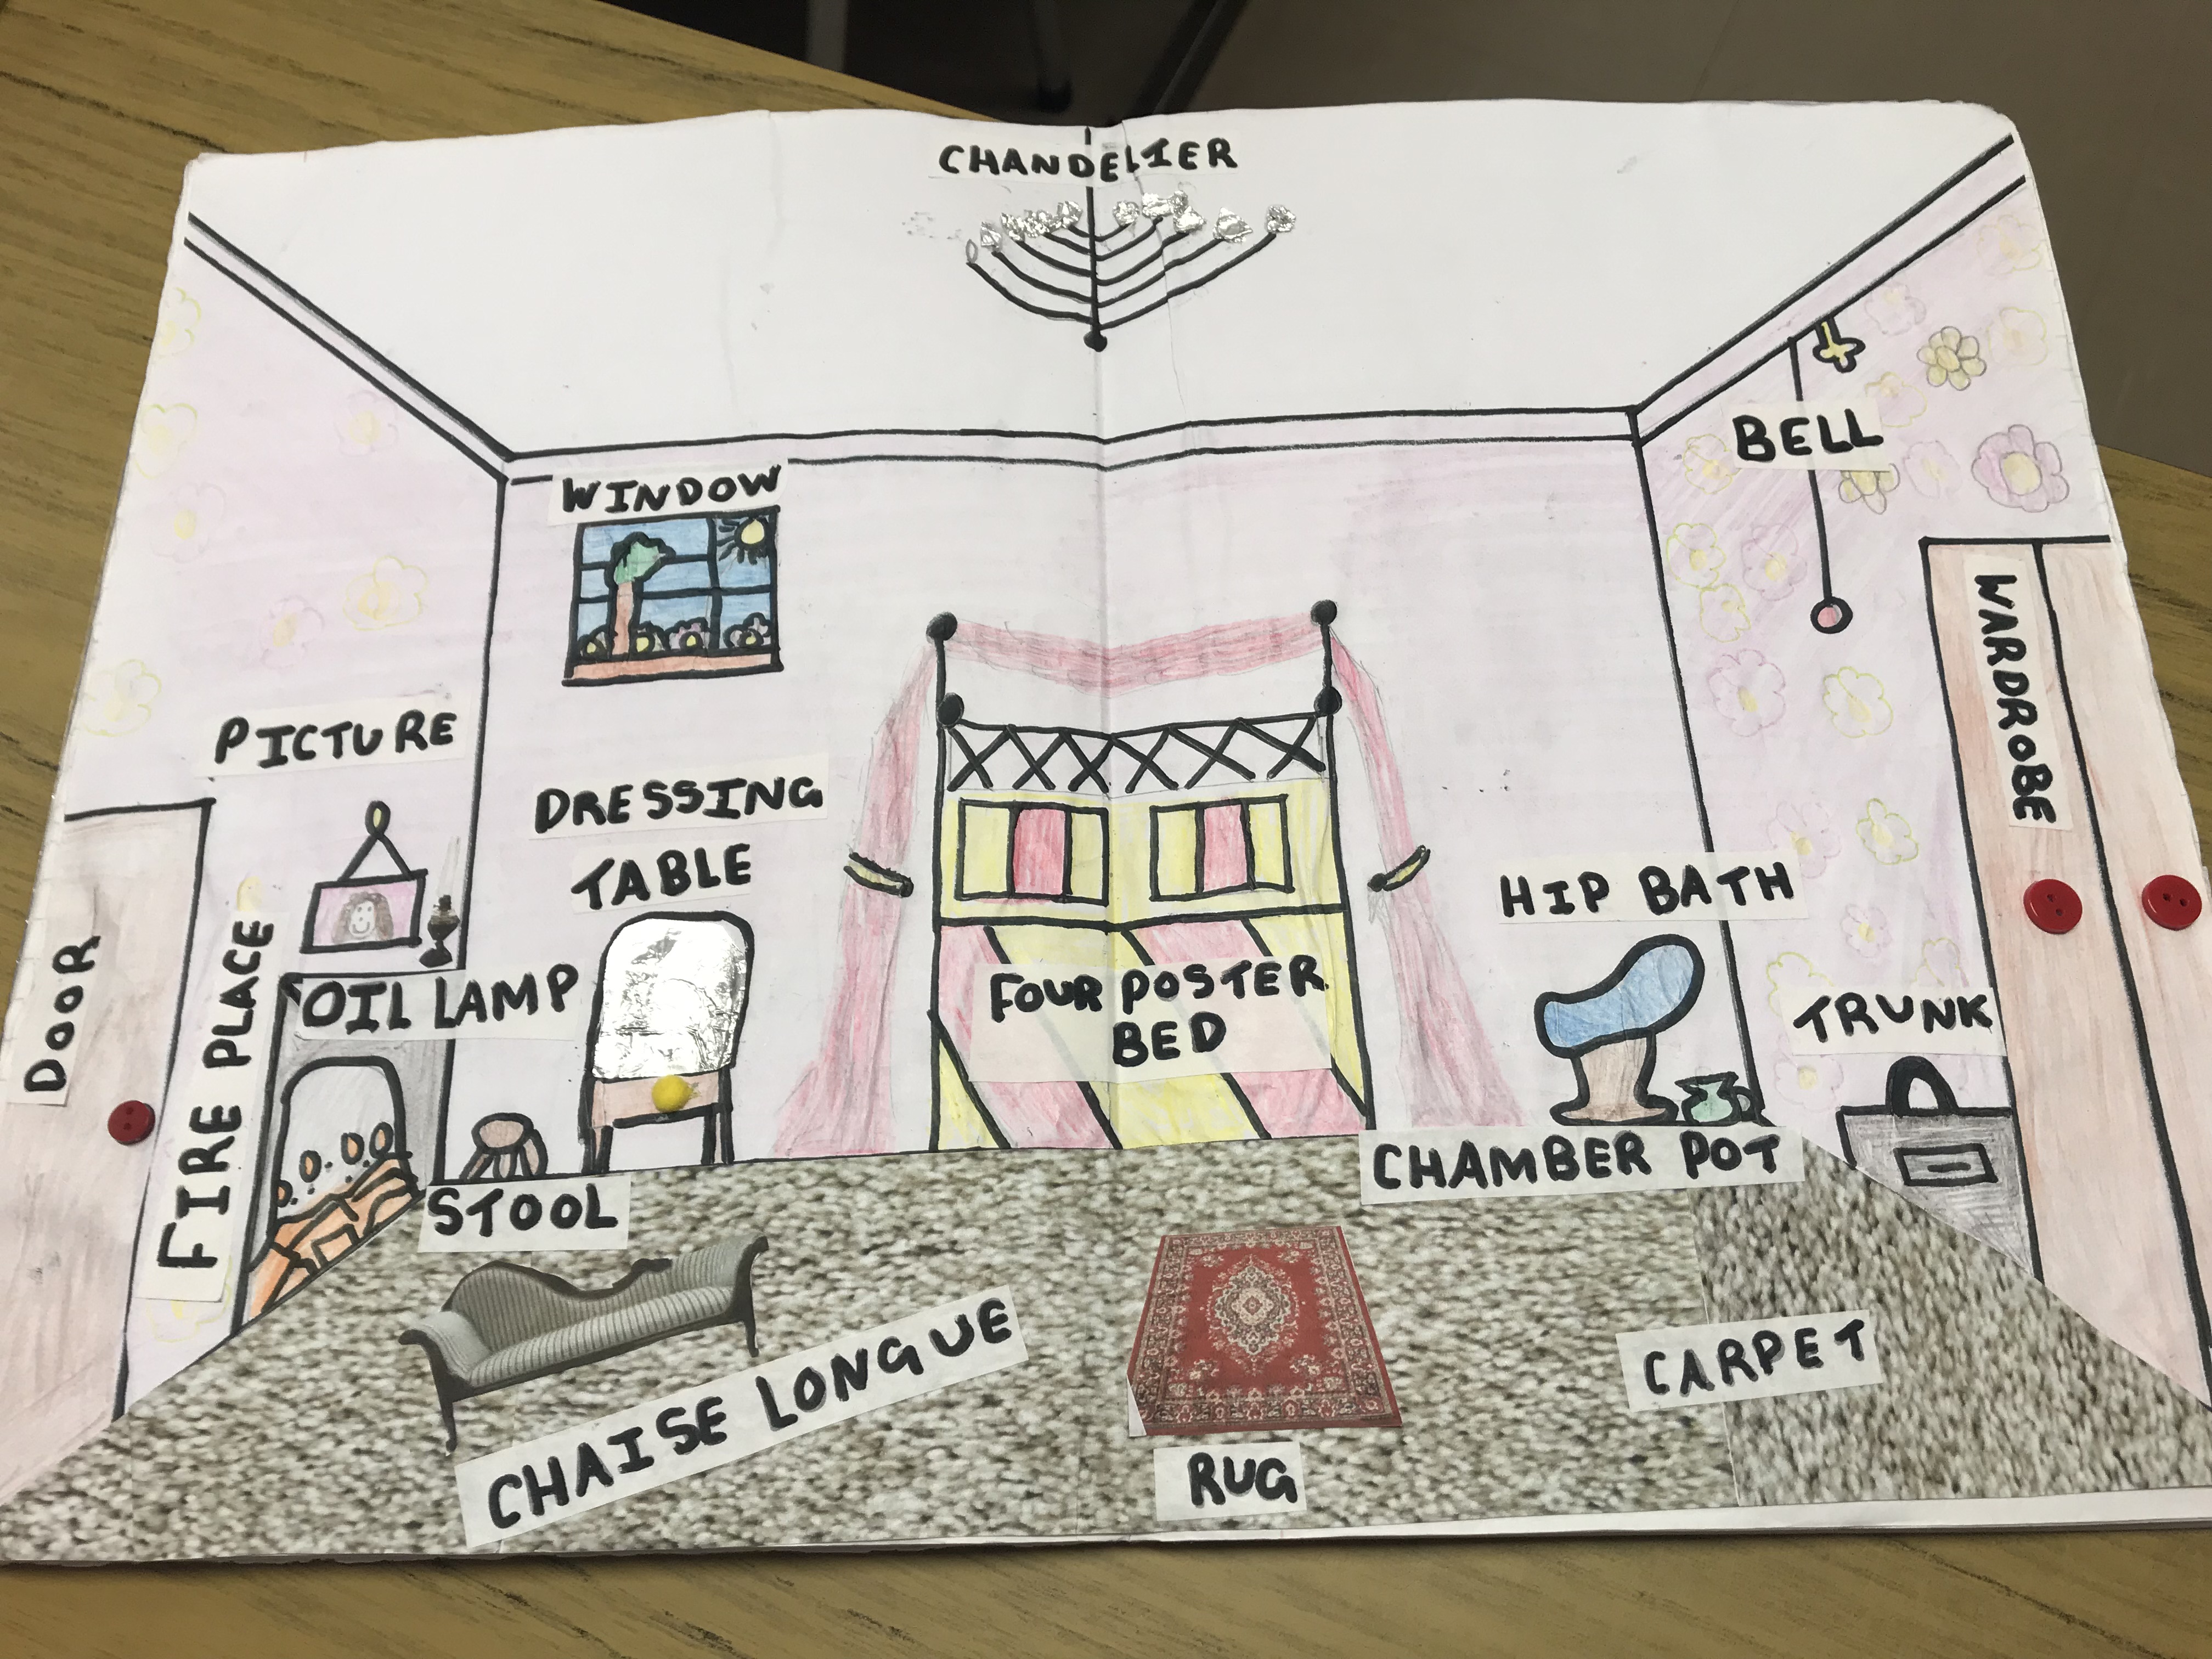 CHANDELIER
BELL
WINDOW
WARDROBE
PICTURE
DRESSING
TABLE
HIP BATH
DOOR
FIRE PLACE
OIL LAMP
FOUR POSTER
BED
TRUNK
CHAMBER POT
STOOL
CHAISE LONGUE
RUG
CARPET